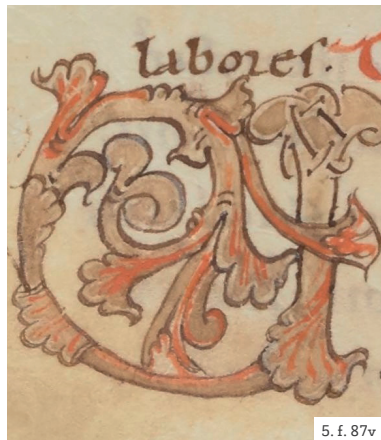 labores.
5. f. 87v